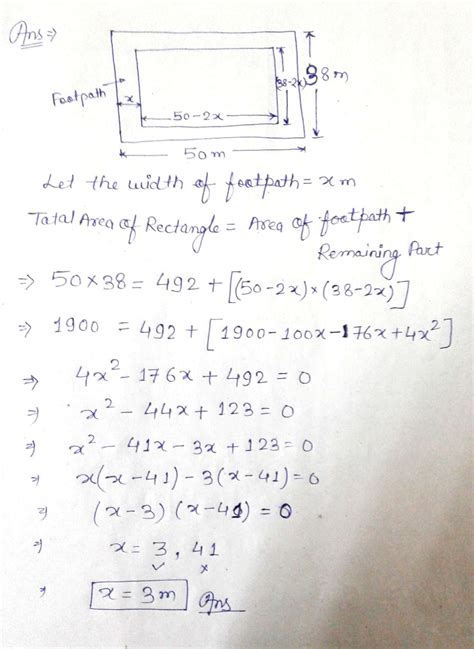 Ans ⇒
38 m
(38-2x)
Footpath
x
50-2x
50 m
Let the width of footpath = x m
Tatal Area of Rectangle = Area of footpath +
Remaining Part
⇒ 50×38 = 492 + [(50-2x)×(38-2x)]
⇒ 1900 = 492 + [1900-100x-176x+4x²]
⇒ 4x² - 176x + 492 = 0
⇒ x² - 44x + 123 = 0
⇒ x² - 41x - 3x + 123 = 0
⇒ x(x-41) - 3(x-41) = 0
⇒ (x-3) (x-41) = 0
⇒ x = 3, 41
✓ ×
⇒ x = 3m Ans